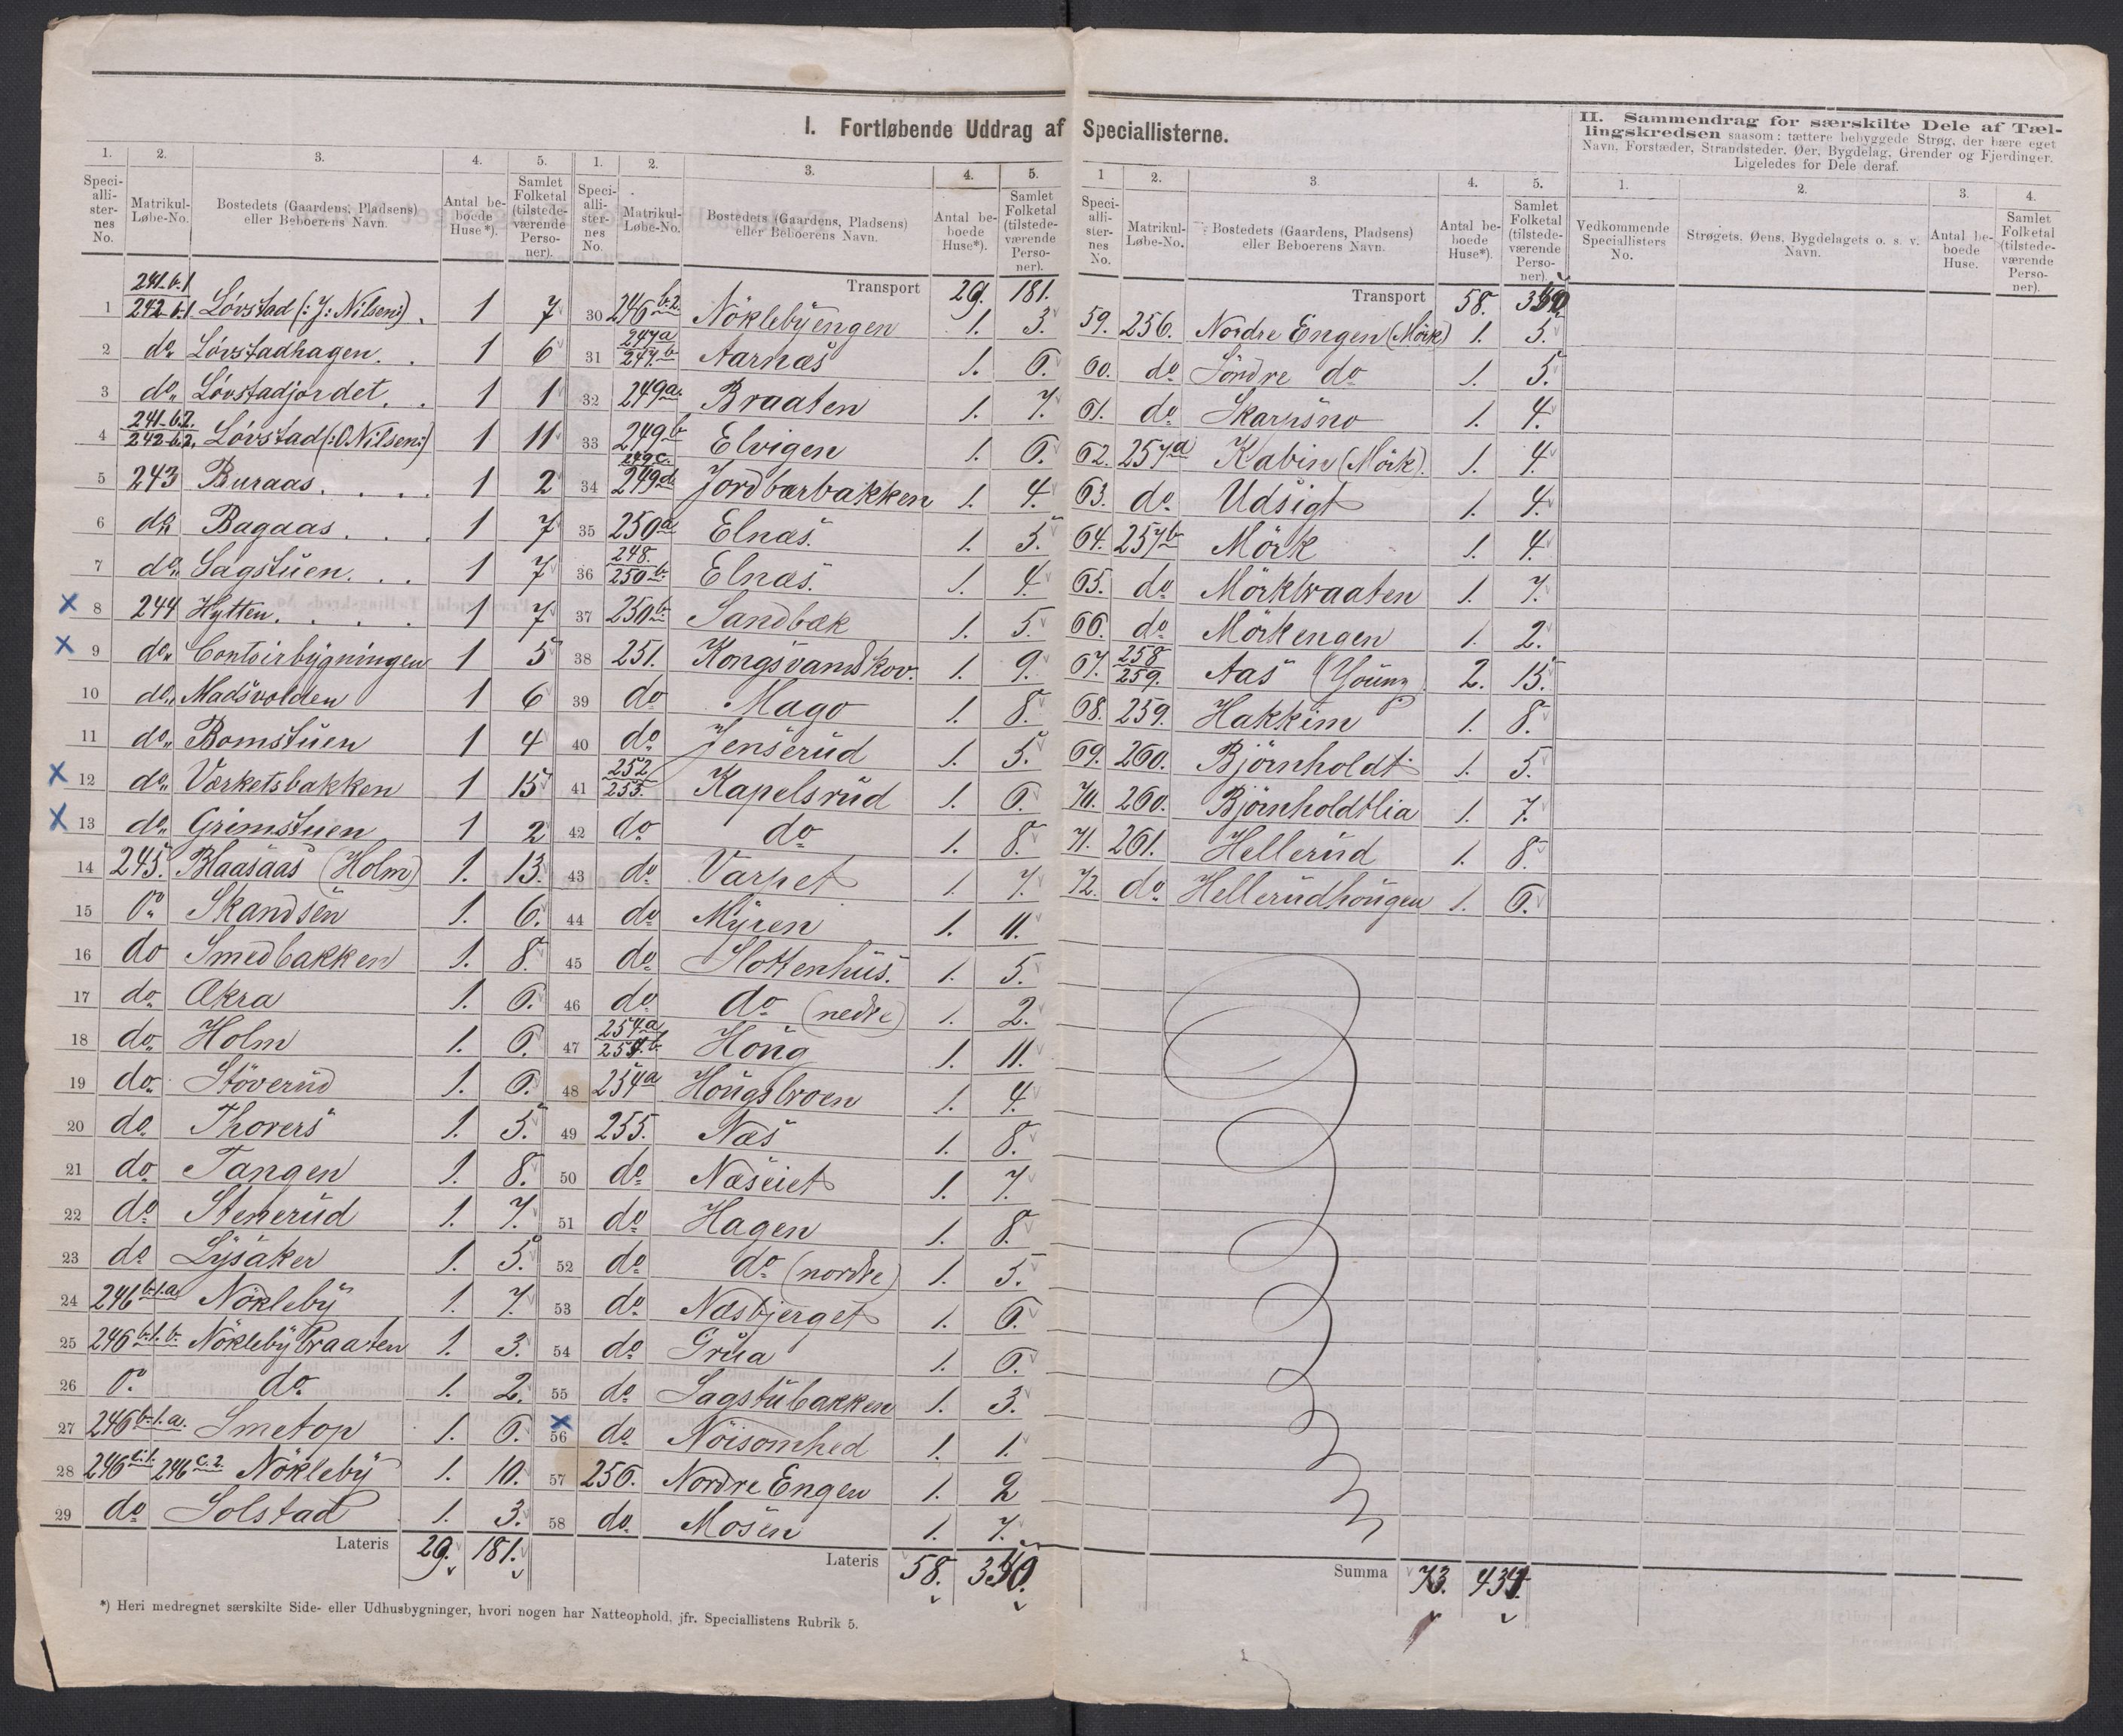 I. Fortløbende Uddrag af Speciallisterne.
II. Sammendrag for særskilte Dele af Tæl-
lingskredsen saasom: tættere bebyggede Strøg, der bære eget
Navn, Forstæder, Strandsteder, Øer, Bygdelag, Grender og Fjerdinger.
Ligeledes for Dele deraf.
1. 2. 3. 4. 5.
Speci-alli-ster-nes No. Matrikul-Løbe-No. Bostedets (Gaardens, Pladsens) eller Beboerens Navn. Antal be-boede Huse*). Samlet Folketal (tilstede-værende Perso-ner).
1 241.b.1 242.b.1 Lövstad (: J: Nilsen:) 1 7
2 do Lövstadhagen 1 6
3 do Lövstadjordet 1 1
4 241.b.2. 242.b.2. Lövstad (: O. Nilsen:) 1 11
5 243 Buraas 1 2
6 do Bagaas 1 7
7 do Sagstuen 1 7
x 8 244 Hytten 1 7
x 9 do Contoirbygningen 1 5
10 do Madsvolden 1 6
11 do Bomstuen 1 4
x 12 do Værketsbakken 1 15
x 13 do Grimstuen 1 2
14 245. Blaasaas (Holm) 1. 13.
15 o Skandsen 1. 6.
16 do Smedbakken 1. 8.
17 do Økra 1. 6.
18 do Holm 1. 6.
19 do Stöverud 1. 6.
20 do Thorers 1. 5.
21 do Tangen 1. 8.
22 do Stenerud 1. 7.
23 do Lysaker 1. 5.
24 246 b.1.a. Nökleby 1. 7.
25 246 b.1.b. Nöklebybraaten 1. 3.
26 o do 1. 2.
27 246 b.1.a. Smetop 1. 6.
28 246 c.1. 246 c.2. Nökleby 1. 10.
29 do Solstad 1. 3.
Lateris 29. 181.
1. 2. 3. 4. 5.
Speci-alli-ster-nes No. Matrikul-Løbe-No. Bostedets (Gaardens, Pladsens) eller Beboerens Navn. Antal be-boede Huse*). Samlet Folketal (tilstede-værende Perso-ner).
Transport 29. 181.
30 246 b.2 Nöklebyengen 1. 3.
31 247a 247.b Aarnæs 1. 6.
32 249a. Braaten 1. 7.
33 249b Elvigen 1. 6.
34 249c. 249d Jordbærbakken 1. 4.
35 250a Elnæs. 1. 5.
36 248. 250b. Elnæs. 1. 4.
37 250b Sandbæk 1. 5.
38 251. Kongsvandskov. 1. 9.
39 do Mago 1. 8.
40 do Jenserud 1. 5.
41 252 253. Kapelsrud 1. 6.
42 do do 1. 8.
43 do Varpet 1. 7.
44 do Myren 1. 11.
45 do Slottenhus. 1. 5.
46 do do (nedre) 1. 2.
47 254a 254.b Höug 1. 11.
48 254a Höugsbroen 1. 4.
49 255. Næs 1. 8.
50 do Næseiet 1. 7.
51 do Hagen 1. 8.
52 do do (nordre) 1. 5.
53 do Næsbjerget 1. 6.
54 do Grua 1. 6.
55 do Sagstubakken 1. 3.
x 56 do Nöisomhed 1. 1.
57 256. Nordre Engen 1. 2
58 do Mosen 1. 7.
Lateris 58.
1 2. 3. 4. 5.
Speci-alli-ster-nes No. Matrikul-Løbe-No. Bostedets (Gaardens, Pladsens) eller Beboerens Navn. Antal be-boede Huse*). Samlet Folketal (tilstede-værende Perso-ner).
Transport 58.
59. 256. Nordre Engen (Mörk) 1. 5.
60. do Söndre do 1. 5.
61. do Skarpsno 1. 4.
62. 257a Kabin (Mörk). 1. 4.
63. do Udsigt 1. 4.
64. 257b Mörk 1. 4.
65. do Mörkbraaten 1. 7.
66. do Mörkengen 1. 2.
67. 258 259. Aas (Young) 2. 15.
68. 259. Hakkim 1. 8.
69. 260. Björnholdt 1. 5.
70. 260. Björnholdtlia 1. 7.
71. 261. Hellerud 1. 8.
72. do Hellerudhougen 1. 6.
Summa 73.
1. 2. 3. 4.
Vedkommende Speciallisters No. Strøgets, Øens, Bygdelagets o. s. v. Navn. Antal be-boede Huse. Samlet Folketal (tilstede-værende Perso-ner).
*) Heri medregnet særskilte Side- eller Udhusbygninger, hvori nogen har Natteophold, jfr. Speciallistens Rubrik 5.